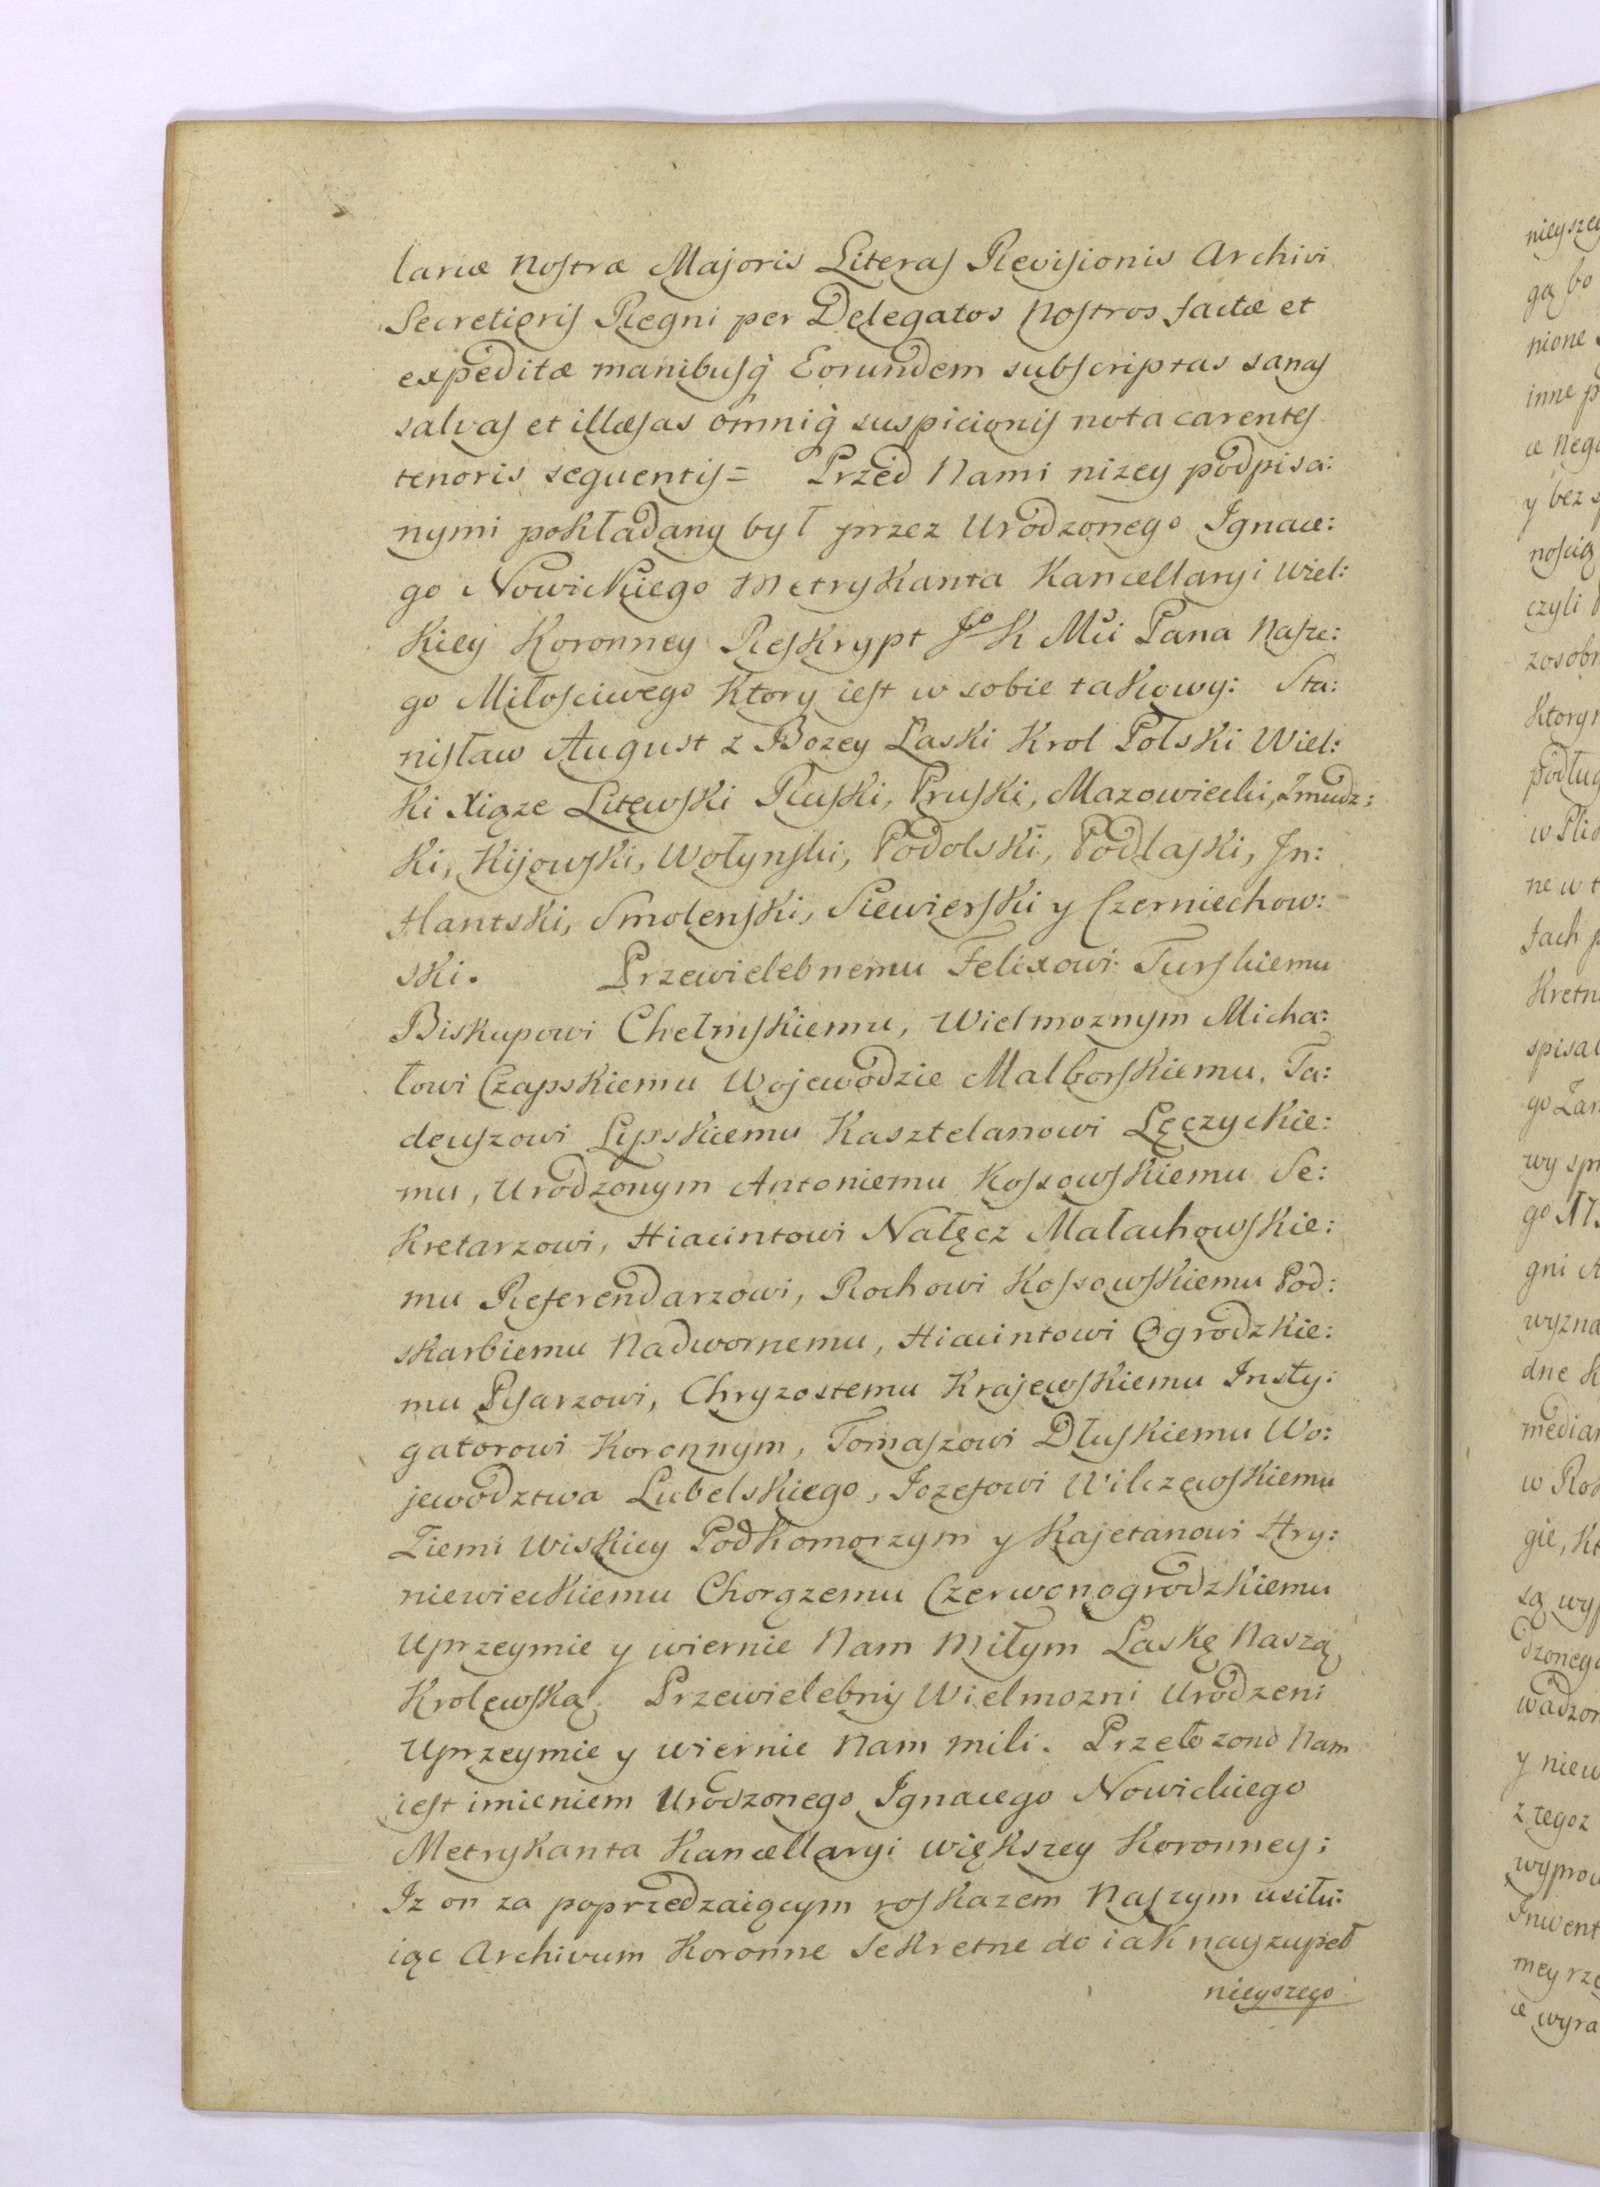 lariæ Nostræ Majoris Literas Revisionis Archivi
Secretioris Regni per Delegatos Nostros factæ et
expeditæ manibusq̀ Eorundem subscriptas sanas
salvas et illæsas omniq̀ suspicionis nota carentes
tenoris sequentis= Przed Nami nizey podpisa:
nymi pokładany był przez Urodzonego Ignace:
go Nowickiego Metrykanta Kancellaryi Wiel:
kiey Koronney Reskrypt Jº K Mci Pana Nasze:
go Miłosciwego ktory iest w sobie takowy: Sta:
nisław August z Bozey Laski Krol Polski Wiel:
ki Xiąze Litewski Ruski, Pruski, Mazowiecki, Zmudz:
ki, Kijowski, Wołynski, Podolski, Podlaski, In:
flantski, Smolenski, Siewierski y Czerniechow:
ski. Przewielebnemu Felixowi Turskiemu
Biskupowi Chełmskiemu, Wielmoznym Micha:
łowi Czapskiemu Wojewodzie Malborskiemu, Ta:
deuszowi Lipskiemu Kasztelanowi Łęczyckie:
mu, Urodzonym Antoniemu Kossowskiemu Se:
kretarzowi, Hiacintowi Nałęcz Małachowskie:
mu Referendarzowi, Rochowi Kossowskiemu Pod:
skarbiemu Nadwornemu, Hiacintowi Ogrodzkie:
mu Pisarzowi, Chryzostemu Krajewskiemu Insty:
gatorowi Koronnym, Tomaszowi Dłuskiemu Wo:
jewodztwa Lubelskiego, Jozefowi Wilczewskiemu
Ziemi Wiskiey Podkomorzym y Kajetanowi Hry:
niewieckiemu Chorązemu Czerwonogrodzkiemu
Uprzeymie y wiernie Nam Miłym Laskę Naszą
Krolewską. Przewielebny Wielmozni Urodzeni
Uprzeymie y wiernie Nam mili. Przełozono Nam
iest imieniem Urodzonego Ignacego Nowickiego
Metrykanta Kancellaryi większey Koronney;
Iz on za poprzedzaiącym roskazem Naszym usiłu:
iąc Archivum Koronne Sekretne do iak nayzupeł
nieyszego